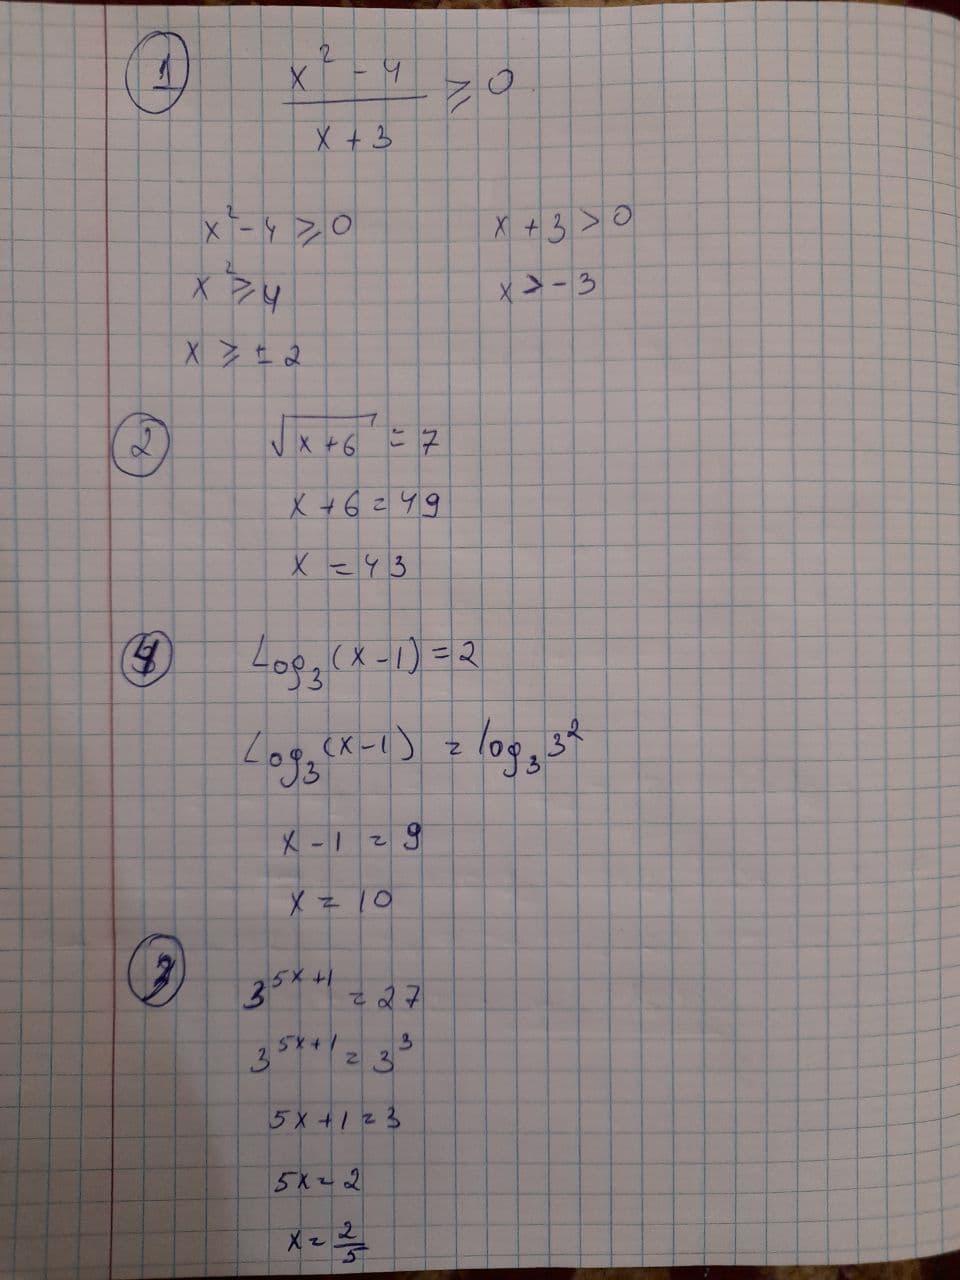 1
x² - 4
x + 3
≥ 0
x² - 4 ≥ 0    x + 3 > 0
x² ≥ 4    x > - 3
x ≥ ± 2
2    √(x + 6) = 7
x + 6 = 49
x = 43
4    Log₃(x - 1) = 2
Log₃(x - 1) = log₃3²
x - 1 = 9
x = 10
3    3^(5x + 1) = 27
3^(5x + 1) = 3³
5x + 1 = 3
5x = 2
x = 2/5